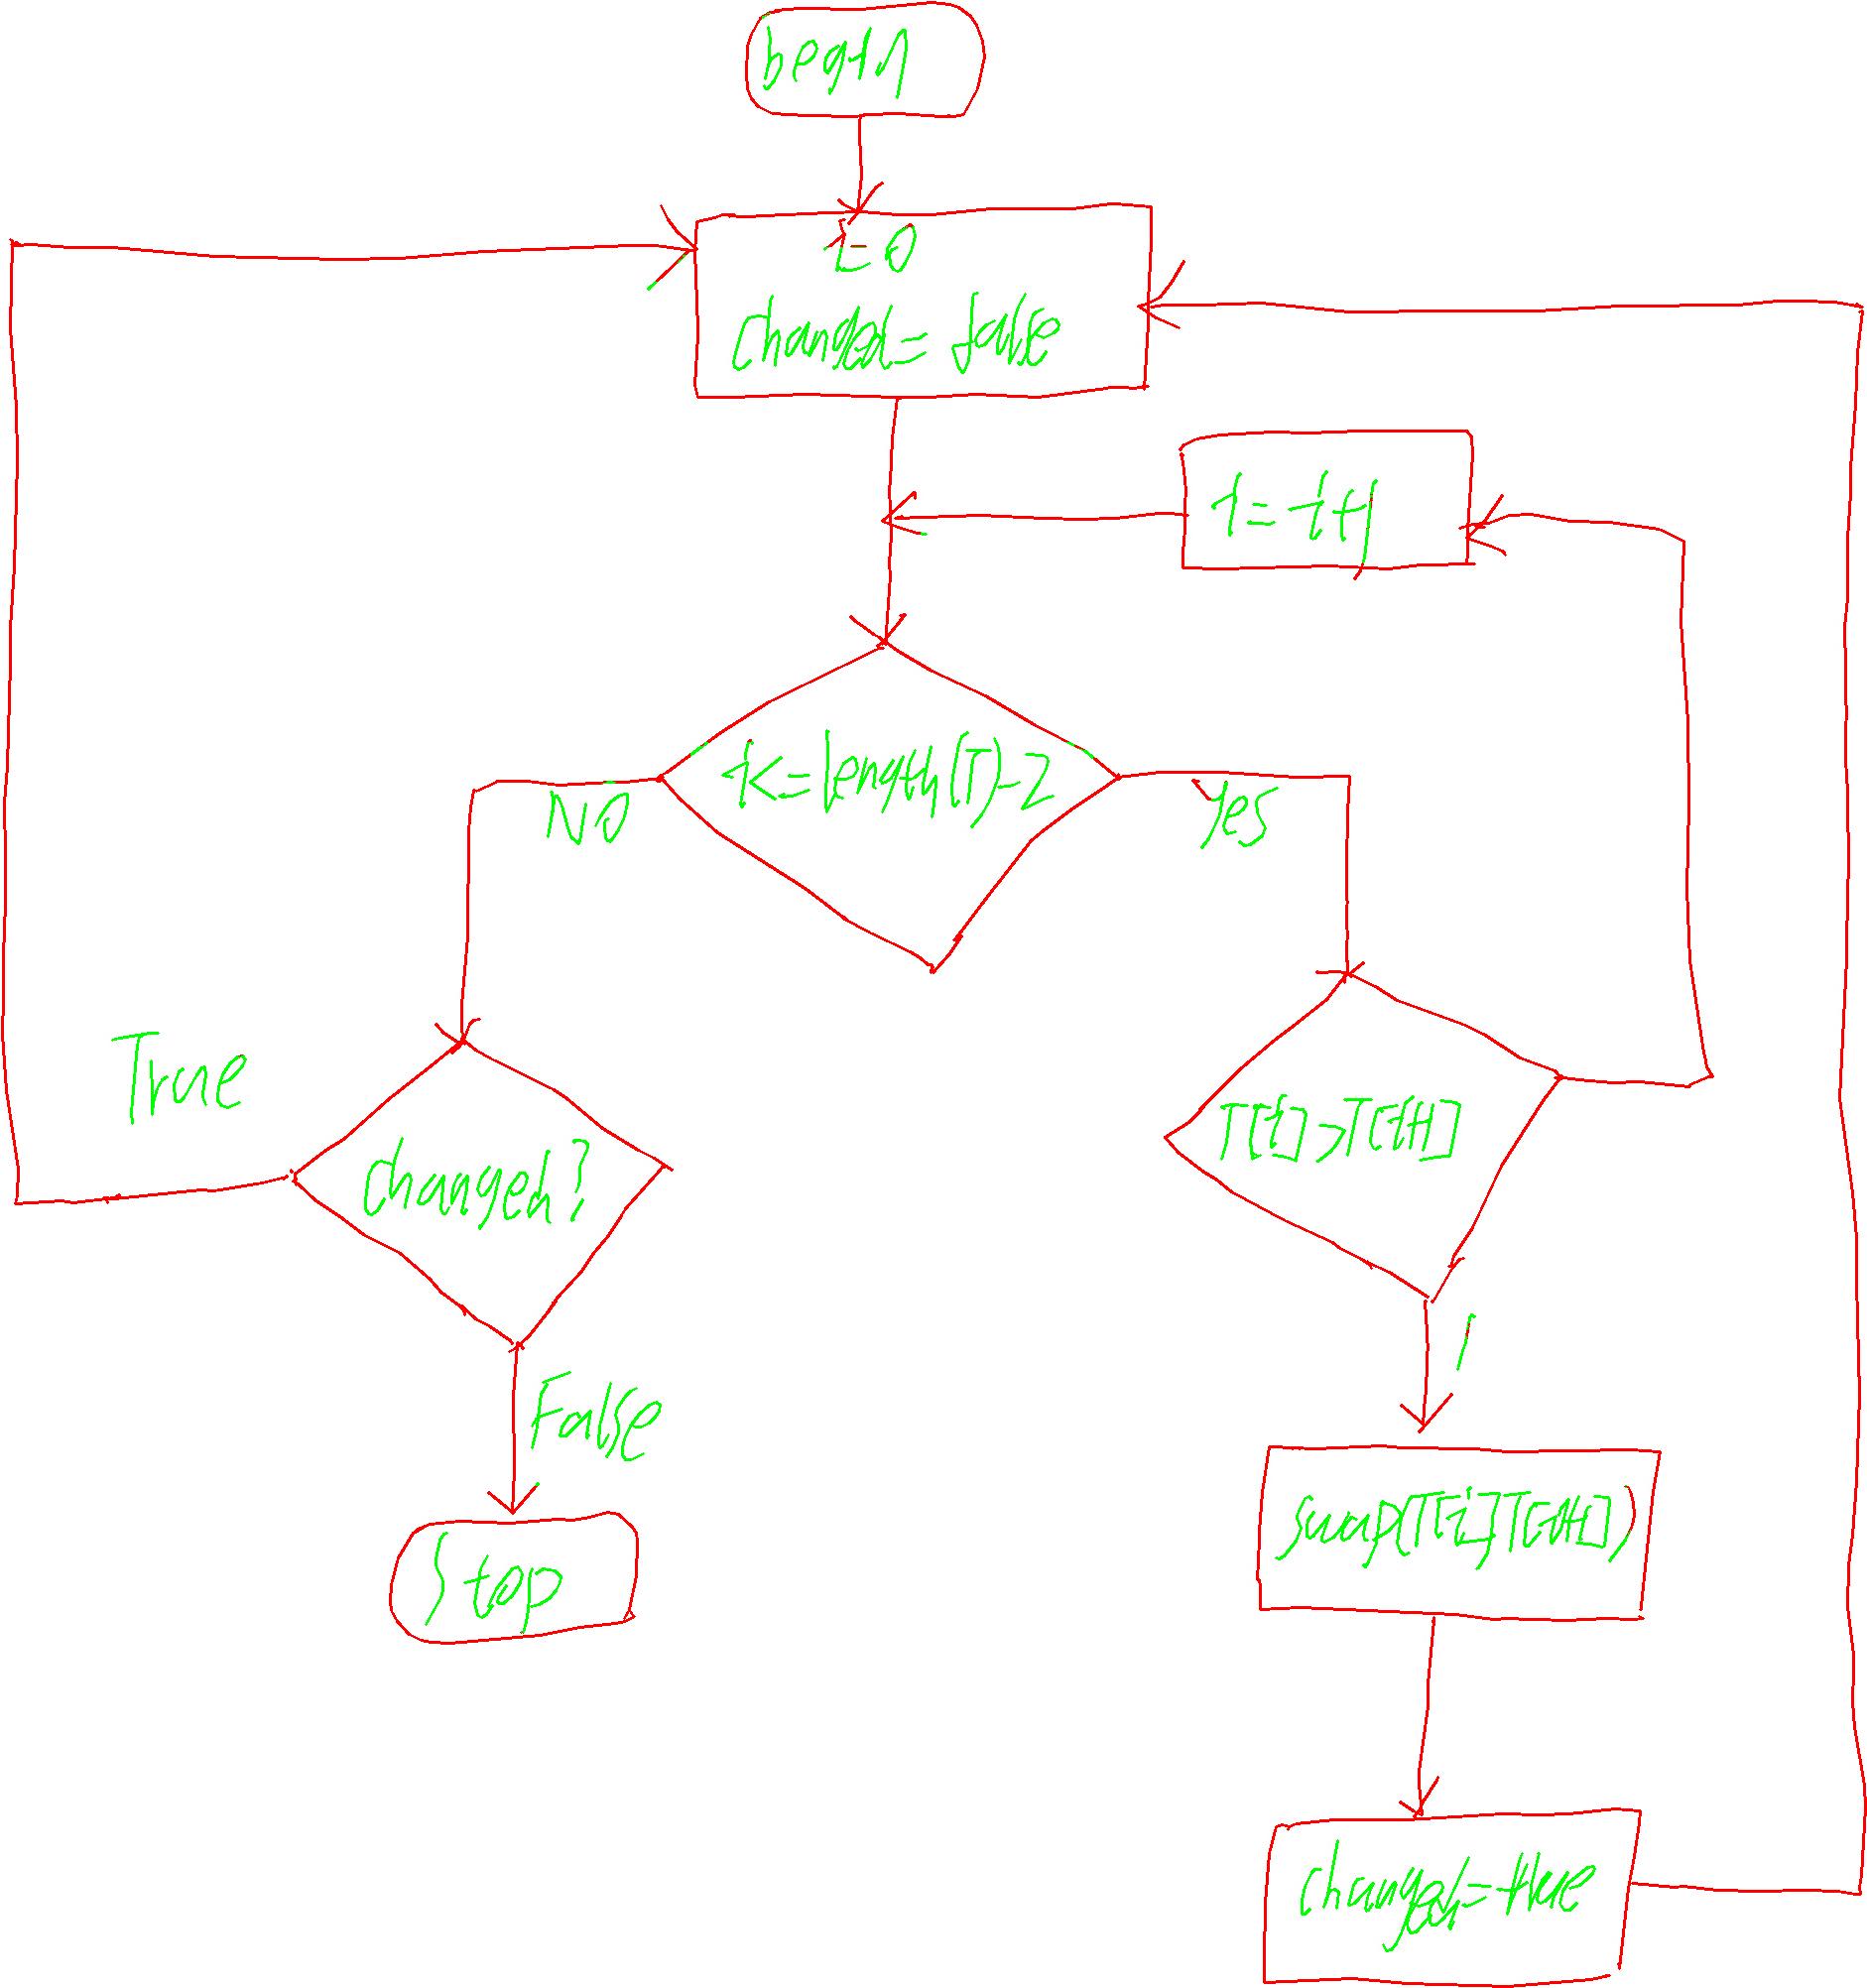 begin
i=0
changed= false
i=i+1
i<=length(T)-2
No
Yes
True
changed?
T[i]>T[i+1]
False
stop
swap(T[i]T[i+1])
changed=true